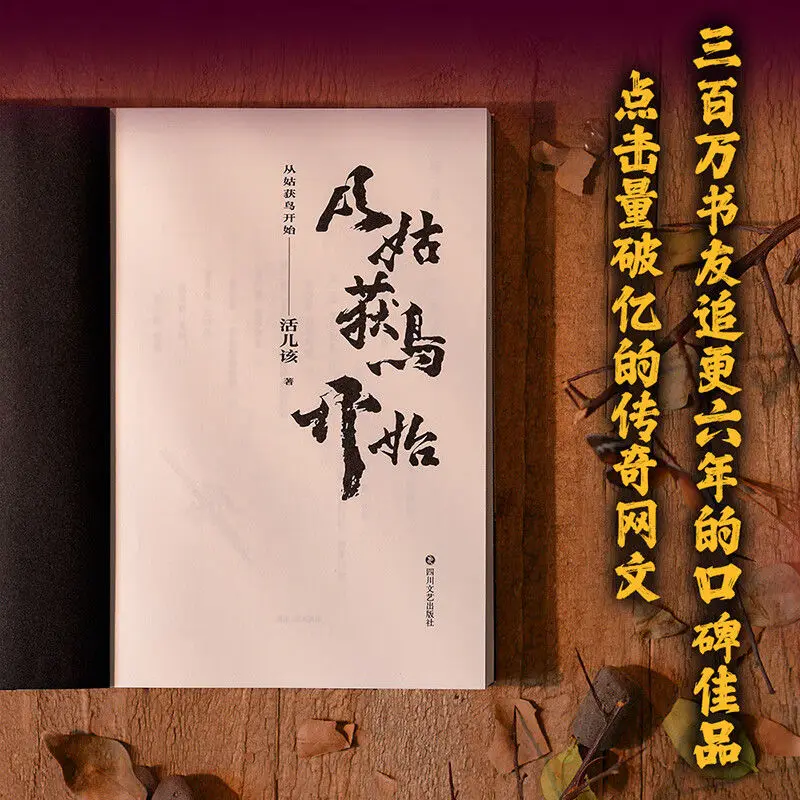 三百万书友追更六年的口碑佳品
点击量破亿的传奇网文
从姑获鸟开始
从姑获鸟开始——活儿该 著
四川文艺出版社